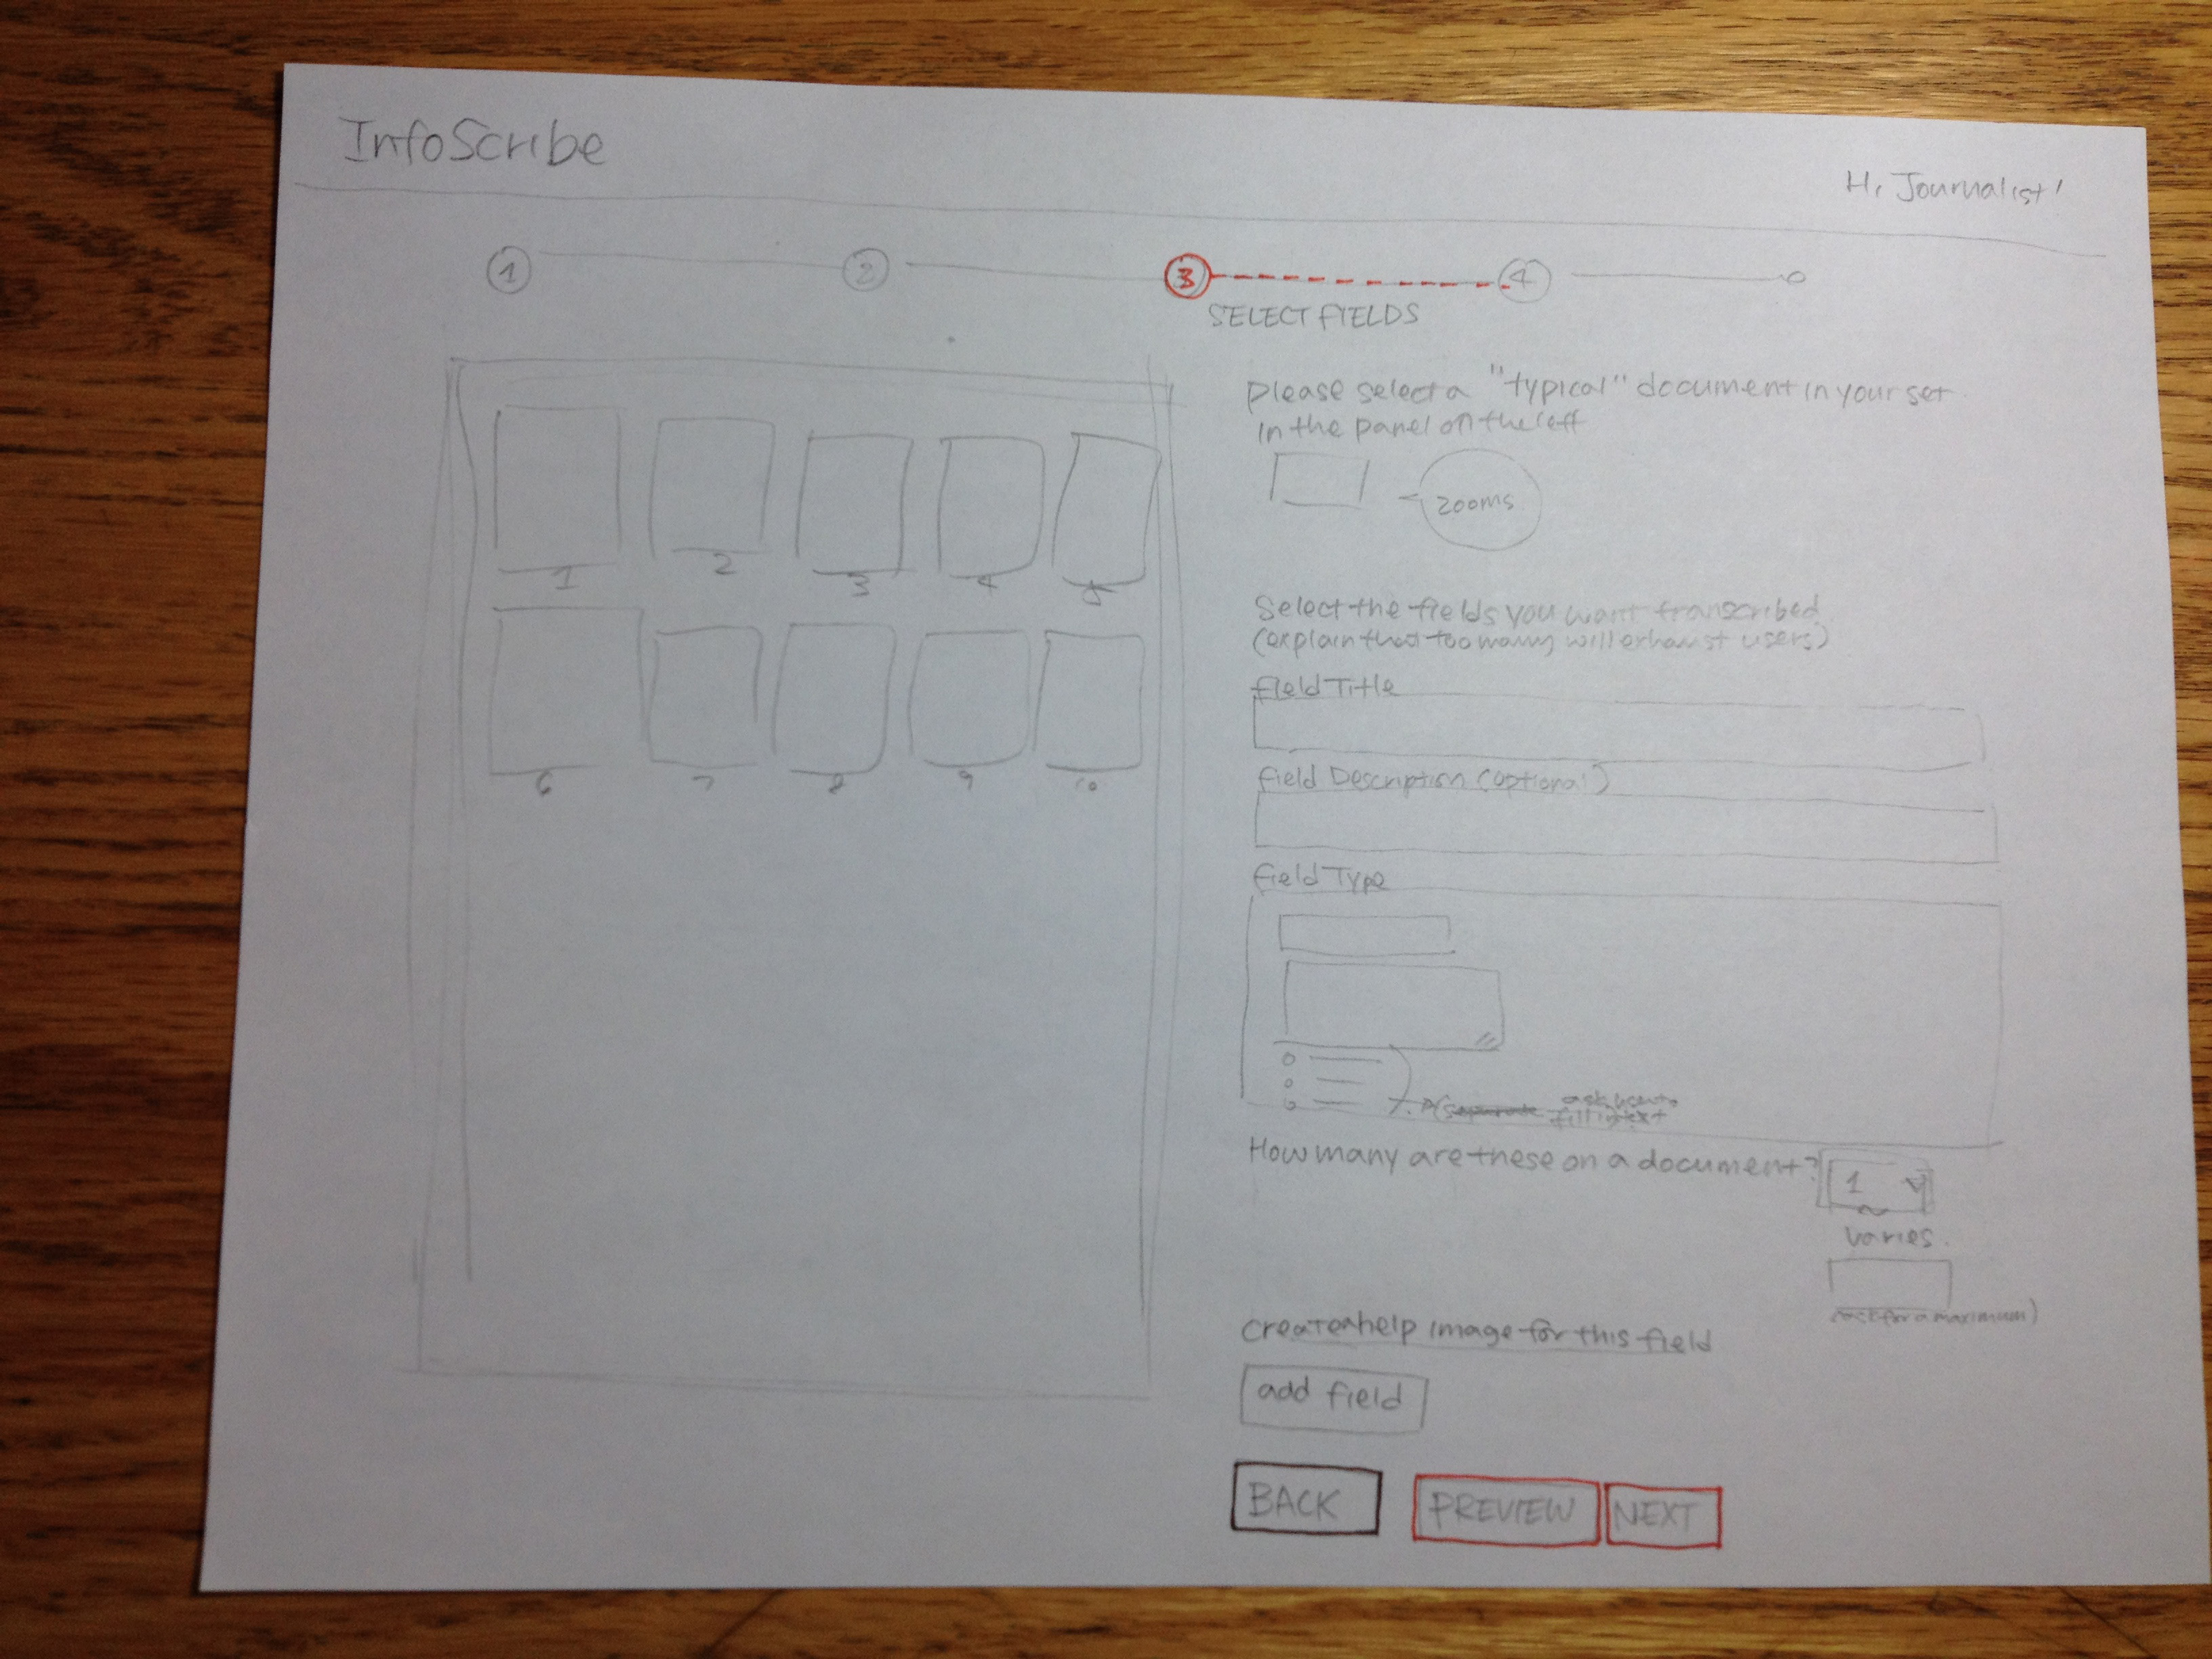 InfoScribe
Hi Journalist!
1 2 3 4
SELECT FIELDS
Please select a "typical" document in your set
in the panel on the left
zooms
1 2 3 4 5
6 7 8 9 10
Select the fields you want transcribed
(explain that too many will exhaust users)
Field Title
Field Description (optional)
Field Type
ask users
fill in text
How many are these on a document?
1
varies.
(ask for a maximum)
Create a help image for this field
add field
BACK
PREVIEW
NEXT